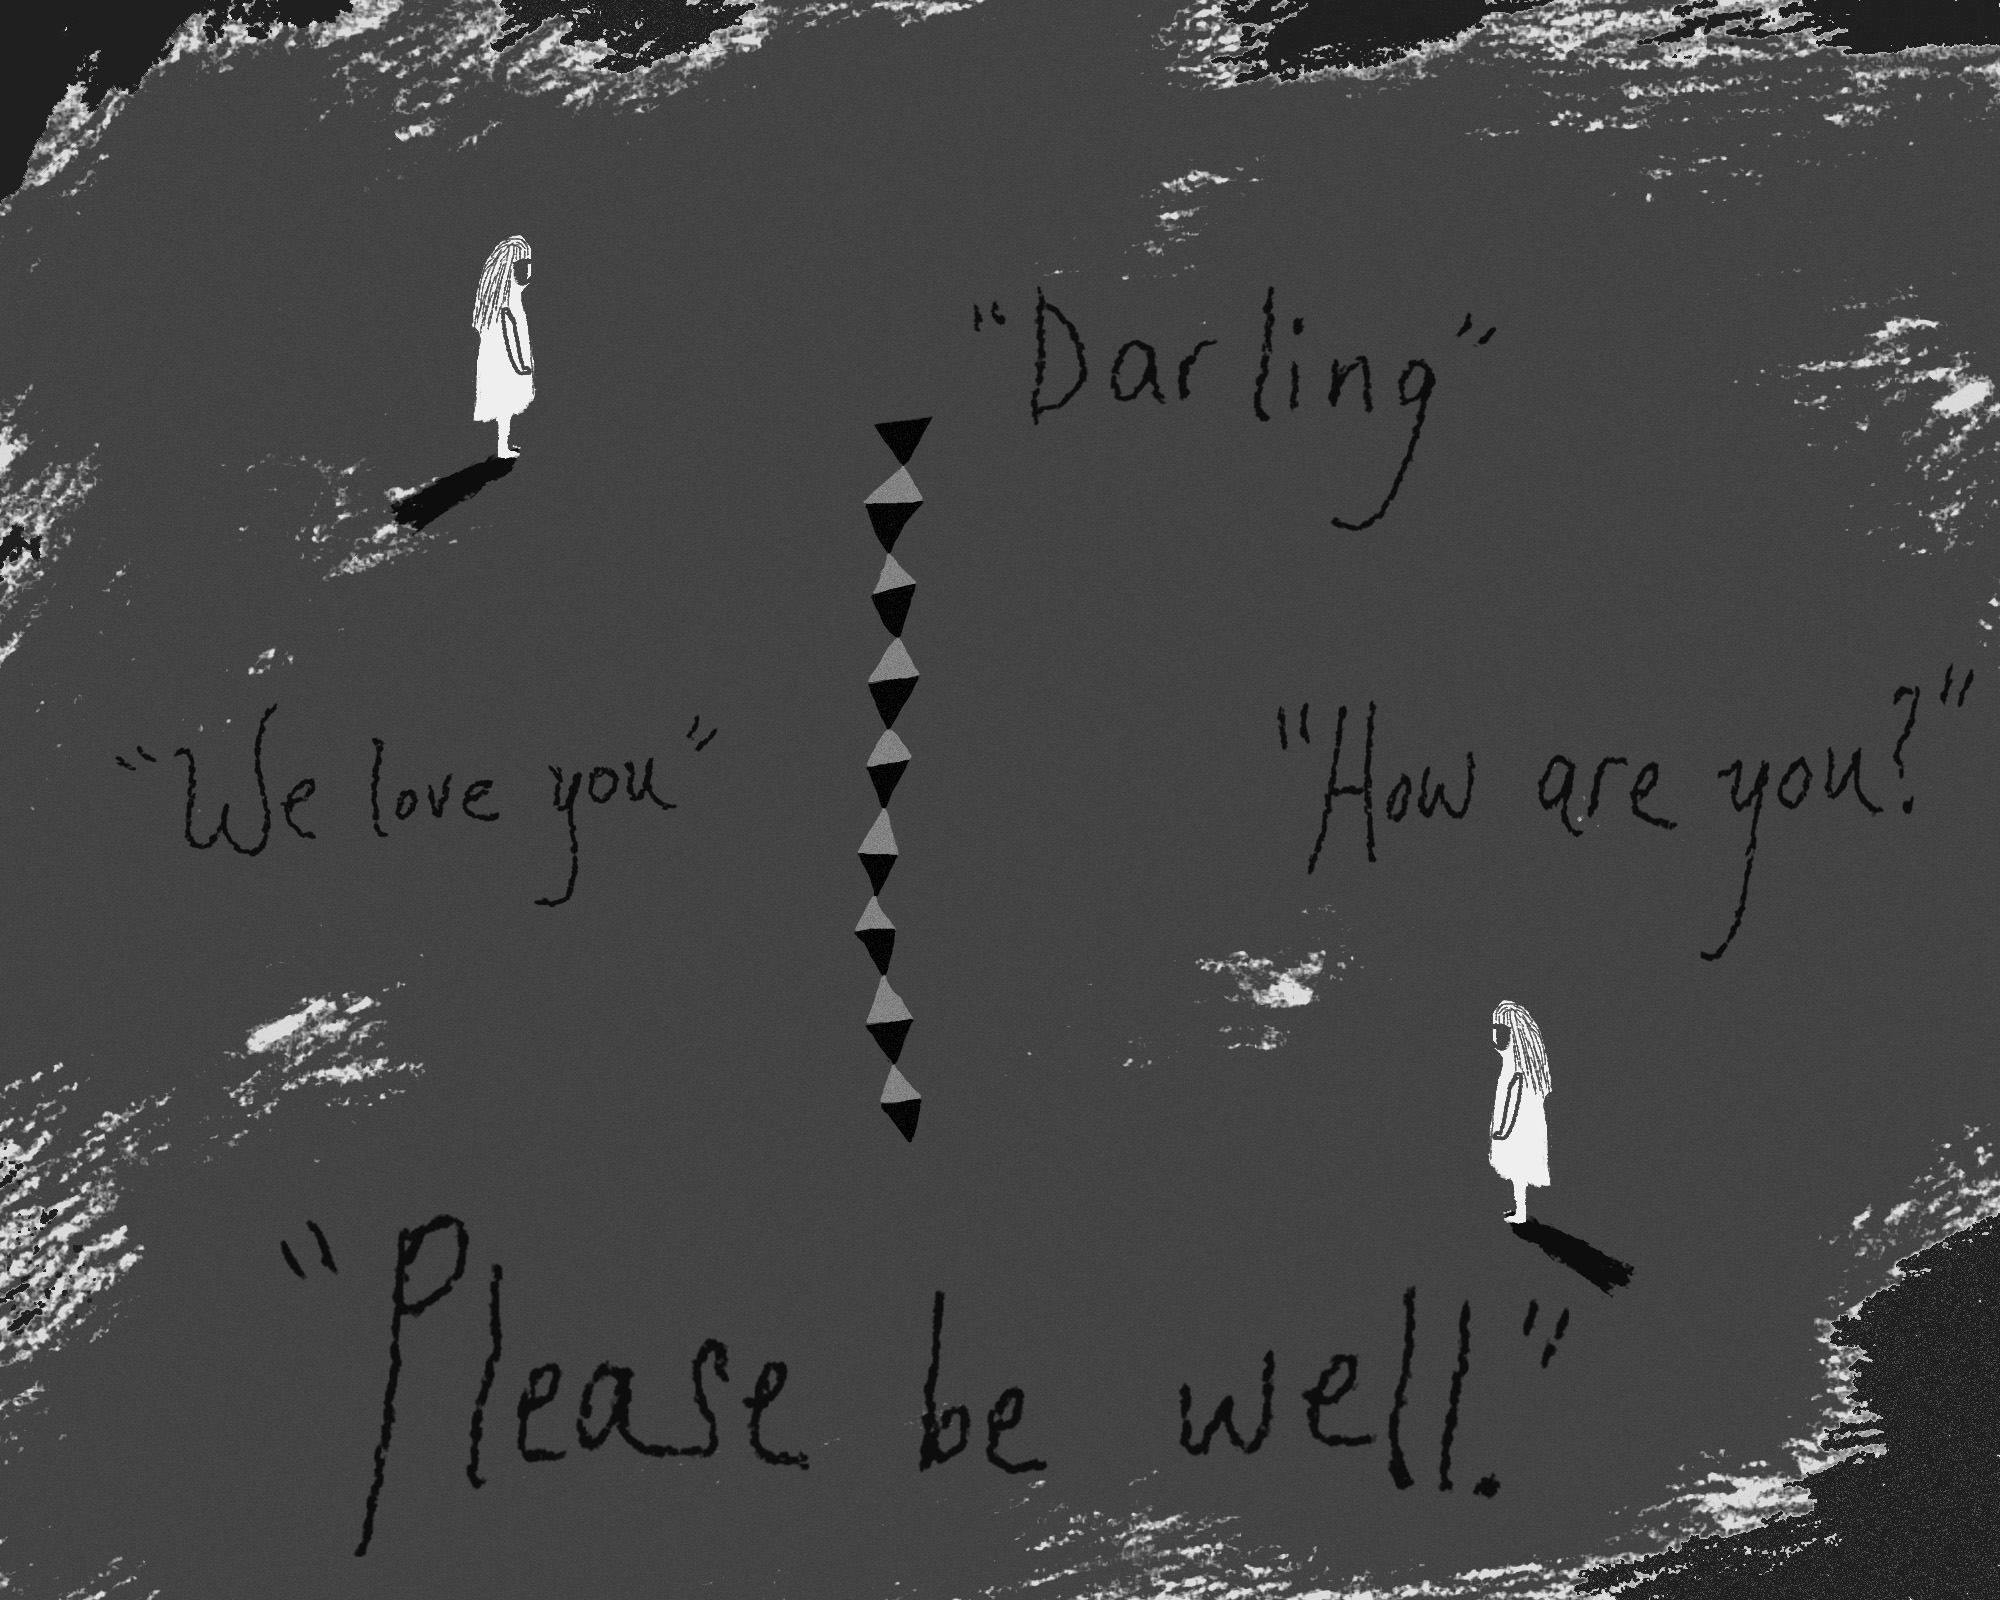 "Darling"
"We love you"
"How are you?"
"Please be well."